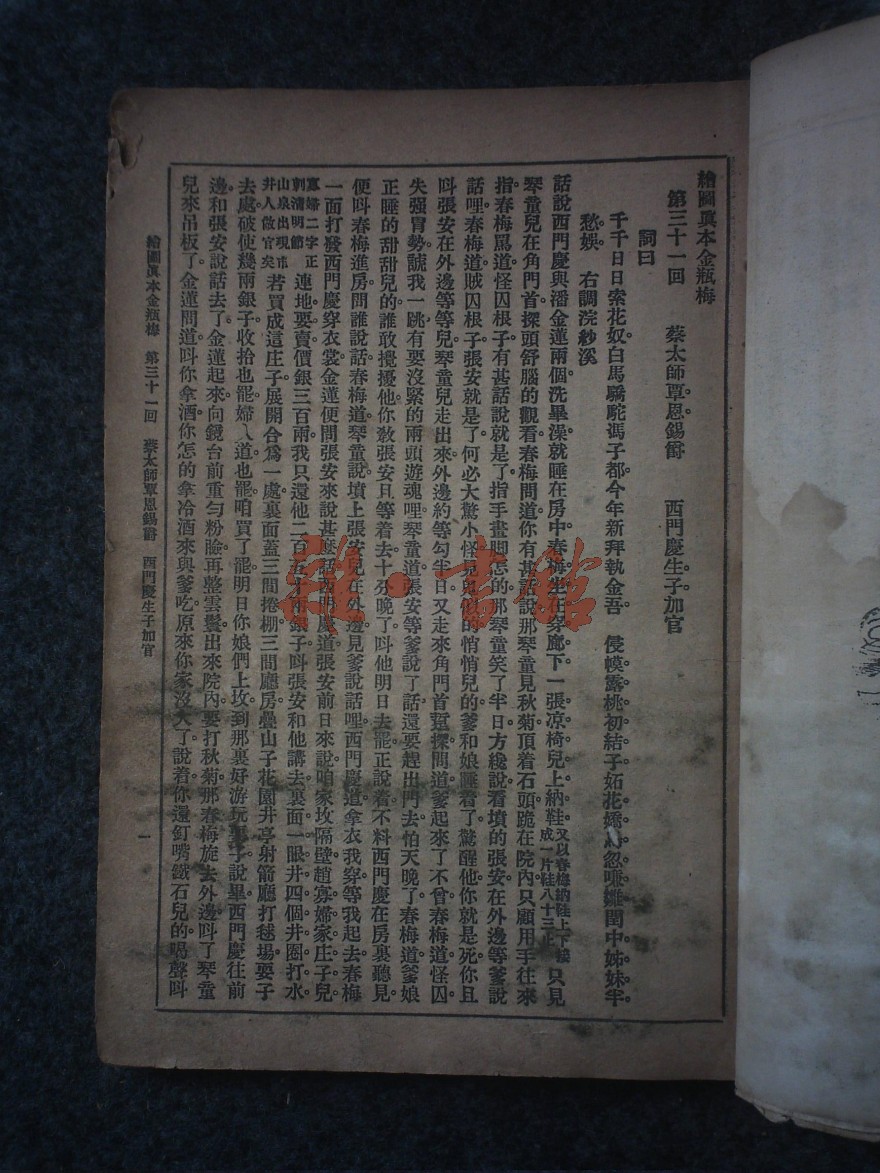 繪圖真本金瓶梅
第三十一回　蔡太師覃恩錫爵　西門慶生子加官
詞曰
千千日日索花奴。白馬驕駝馮子都。今年新拜執金吾。　侵幙露桃初結子。妬花嬌　忽嗛雛。閨中姊妹半
愁娛。　右調浣紗溪
話說西門慶與潘金蓮兩個洗畢澡。就睡在房中。春梅坐在穿廊下一張凉椅兒上納鞋。又以春梅納鞋上下接成一片鞋八十三　只見
琴童兒在角門首探頭舒腦的觀看。春梅問道。你有甚話說。那琴童見秋菊頂着石頭跪在院內。只顧用手往來
指。春梅罵道。怪囚根子。有甚話說就是了。指手畫脚怎的。那琴童笑了半日。方纔說。看墳的張安在外邊等爹說
話哩。春梅道。賊囚根子。張安就是了。何必大驚小怪。見鬼似的。悄悄兒的。爹和娘睡着了。驚醒他。你就是死。你且
呌張安在外邊等等兒。琴童兒走出來外邊。約等勾半日。又走來角門首　探。問道。爹起來了不曾。春梅道。怪囚
失張冒勢。諕我一跳。有要沒緊的。兩頭遊魂哩。琴童道。張安等爹說了話。還要趕出門去。怕天晚了。春梅道。爹娘
正睡的甜甜兒的。誰敢攪擾他。你敎張安且等着去。十分晚了。呌他明日去罷。正說着。不料西門慶在房裏聽見。
便呌春梅進房。問誰說話。春梅道。琴童說墳上張安兒在外邊。見爹說話哩。西門慶道。拿衣我穿。等我起去。春梅
一面打發西門慶穿衣裳。金蓮便問張安來說甚麼話。西門慶道。張安前日來說。咱家坟隔壁趙寡婦家庄子兒
寡婦二字正刺清明節山泉出現市井人做官矣　連地要賣。價銀三百兩。我只還他二百五十兩銀子。呌張安和他講去。裏面一眼井。四個井圈打水。
若買成這庄子。展開合爲一處。裏面蓋三間捲棚。三間廳房。疊山子花園。井亭。射箭廳。打毬場。耍子
去處。破使幾兩銀子收拾也罷。婦人道。也罷。咱買了罷。明日你娘們上坟。到那裏好游玩耍子。說畢。西門慶往前
邊和張安說話去了。金蓮起來。向鏡台前重勻粉臉。再整雲鬟。出來院內要打秋菊。那春梅旋去外邊呌了琴童
兒來吊板了。金蓮問道。呌你拿酒。你怎的拿冷酒來與爹吃。原來你家沒大了。說着你還釘嘴鐵石兒的。喝聲呌
繪圖真本金瓶梅　第三十一回　蔡太師覃恩錫爵　西門慶生子加官
一
雅·書館